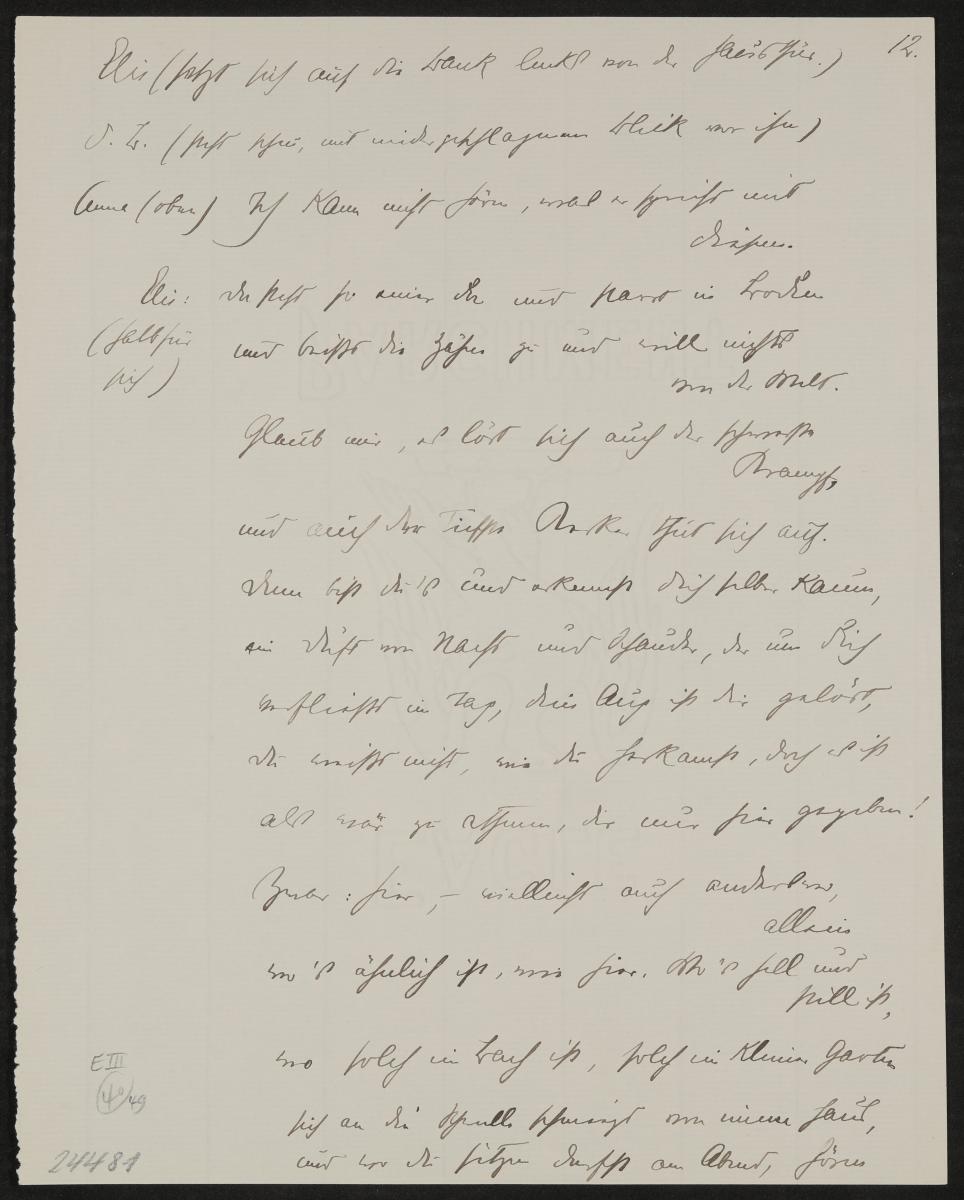 12.
Elis (setzt sich auf die Bank links von der Hausthür.)
S. W. (steht scheu, mit niedergeschlagenem Blick vor ihm)
Anna (oben) Ich kann nicht hören, was er spricht mit
diesem.
Elis: Da steht so einer da und starrt in Brocken
(halb für
sich)
und beißt die Zähne zu und will nichts
von der Welt.
Glaub mir, es löst sich auch der schwerste
Krampf,
und auch der tiefste Kerker thut sich auf.
Dann bist du's und erkennst dich selber kaum,
ein Duft von Nacht und Schauder, der um dich
verfließt im Tag, dein Aug ist dir gelöst,
du weißt nicht, wie du herkamst, doch es ist
als wär zu athmen, dir nur hier gegeben!
Zwar: hier, – vielleicht auch anderswo,
allein
wo's ähnlich ist, wie hier. Wo's hell und
still ist,
wo solch ein Bach ist, solch ein kleiner Garten
sich an die Schwelle schmiegt von einem Haus,
und wo du sitzen darfst am Abend, hören
E III
40/49
24481